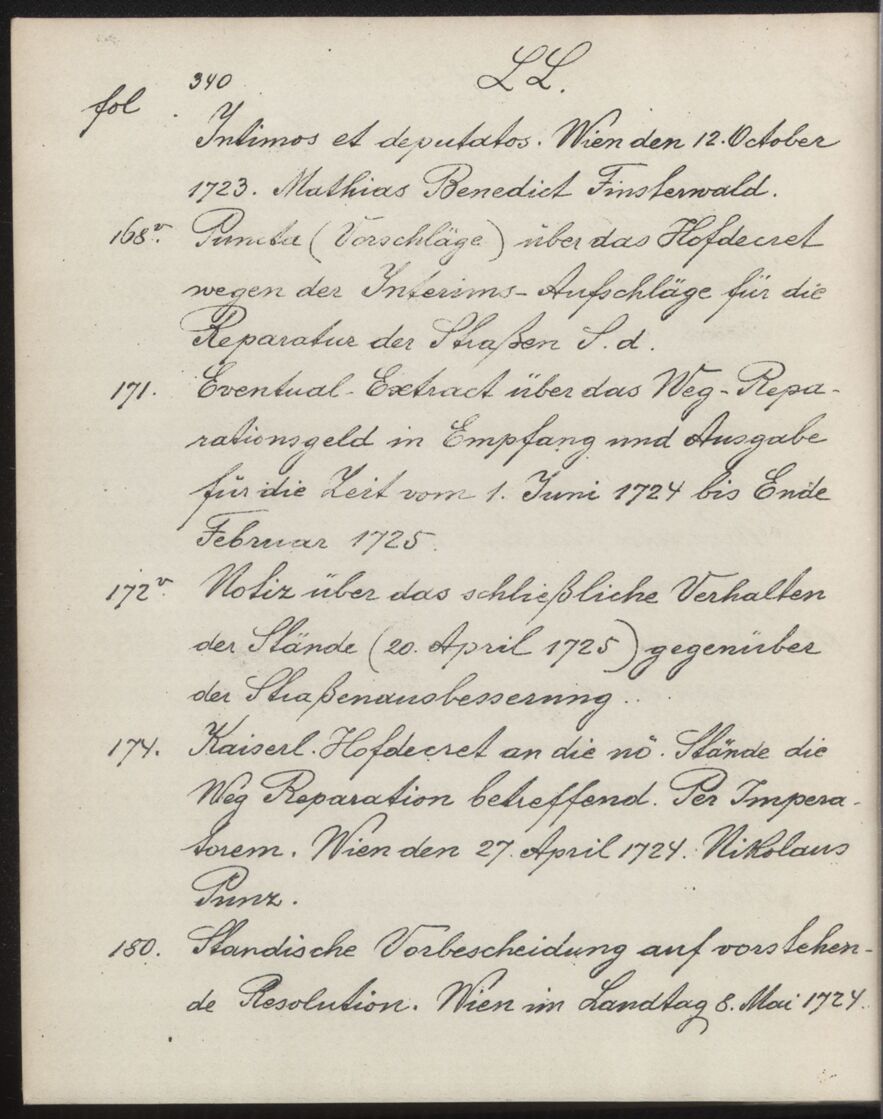 340 LL.
fol
Intimos et deputatos. Wien den 12. October
1723. Mathias Benedict Finsterwald.
168v. Puncta (Vorschläge) über das Hofdecret
wegen der Interims-Aufschläge für die
Reparatur der Straßen S. d.
171. Eventual-Extract über das Weg-Repa-
rationsgeld in Empfang und Ausgabe
für die Zeit vom 1. Juni 1724 bis Ende
Februar 1725.
172v. Notiz über das schließliche Verhalten
der Stände (20. April 1725) gegenüber
der Straßenausbesserung..
174. Kaiserl. Hofdecret an die nö. Stände die
Weg Reparation betreffend. Per Impera-
torem. Wien den 27. April 1724. Nikolaus
Punz.
180. Standische Vorbescheidung auf vorstehen-
de Resolution. Wien im Landtag 8. Mai 1724.